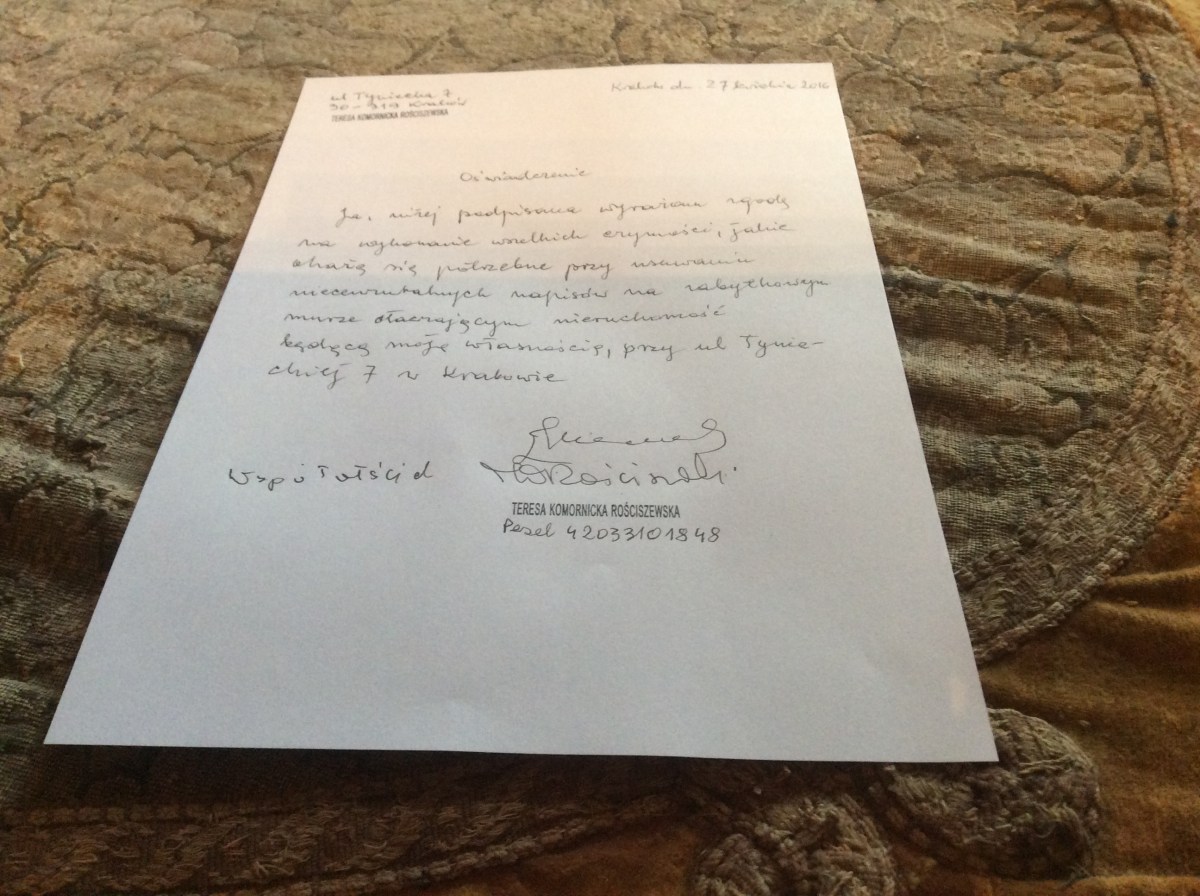 ul Tyniecka 7
30-319 Kraków
TERESA KOMORNICKA ROŚCISZEWSKA
Kraków dn. 27 kwietnia 2016
Oświadczenie
Ja, niżej podpisana wyrażam zgodę
na wykonanie wszelkich czynności, jakie
okażą się potrzebne przy usuwaniu
niecenzuralnych napisów na zabytkowym
murze otaczającym nieruchomość
będącą moją własnością, przy ul Tynie-
ckiej 7 w Krakowie
Współwłaściciel
TERESA KOMORNICKA ROŚCISZEWSKA
Pesel 42033101848